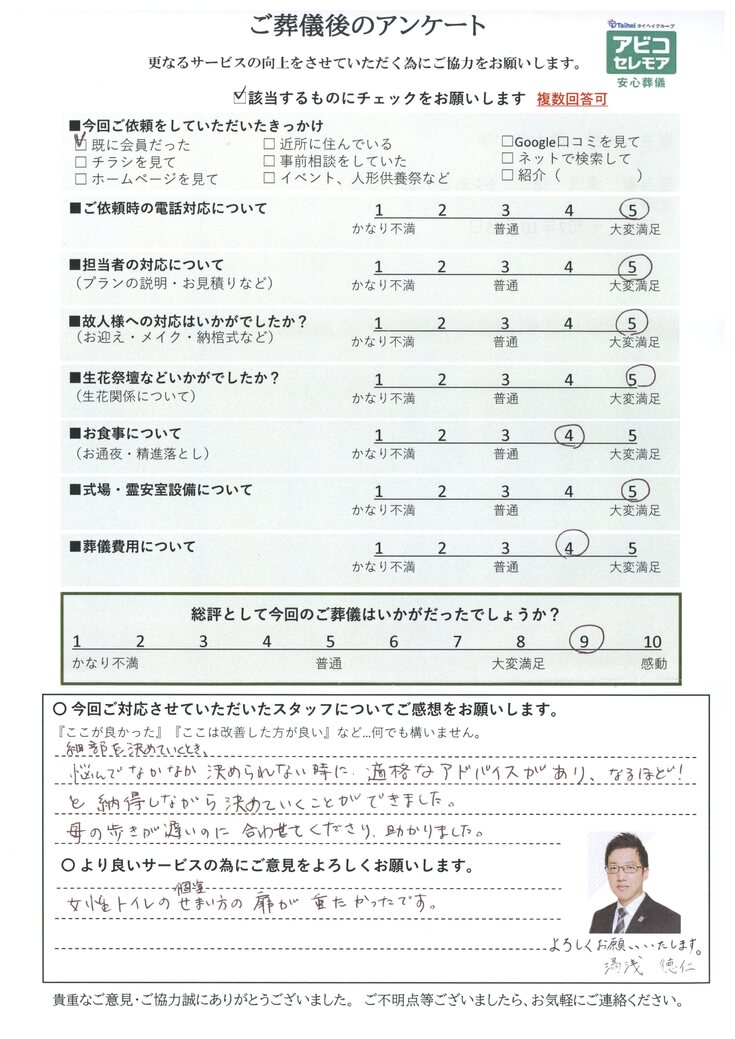 ご葬儀後のアンケート
Taihei タイヘイグループ
アビコ
セレモア
安心葬儀
更なるサービスの向上をさせていただく為にご協力をお願いします。
☑該当するものにチェックをお願いします 複数回答可
■今回ご依頼をしていただいたきっかけ
☑既に会員だった □近所に住んでいる □Google口コミを見て
□チラシを見て □事前相談をしていた □ネットで検索して
□ホームページを見て □イベント、人形供養祭など □紹介（ ）
■ご依頼時の電話対応について 1 2 3 4 5
かなり不満 普通 大変満足
■担当者の対応について 1 2 3 4 5
（プランの説明・お見積りなど） かなり不満 普通 大変満足
■故人様への対応はいかがでしたか？ 1 2 3 4 5
（お迎え・メイク・納棺式など） かなり不満 普通 大変満足
■生花祭壇などいかがでしたか？ 1 2 3 4 5
（生花関係について） かなり不満 普通 大変満足
■お食事について 1 2 3 4 5
（お通夜・精進落とし） かなり不満 普通 大変満足
■式場・霊安室設備について 1 2 3 4 5
かなり不満 普通 大変満足
■葬儀費用について 1 2 3 4 5
かなり不満 普通 大変満足
総評として今回のご葬儀はいかがだったでしょうか？
1 2 3 4 5 6 7 8 9 10
かなり不満 普通 大変満足 感動
○ 今回ご対応させていただいたスタッフについてご感想をお願いします。
『ここが良かった』『ここは改善した方が良い』など…何でも構いません。
細部を決めていくとき、
悩んでなかなか決められない時に、適格なアドバイスがあり、なるほど！
と納得しながら決めていくことができました。
母の歩きが遅いのに合わせてくださり、助かりました。
○ より良いサービスの為にご意見をよろしくお願いします。
個室
女性トイレのせまい方の扉が重たかったです。
よろしくお願いいたします。
湯浅 徳仁
貴重なご意見・ご協力誠にありがとうございました。 ご不明点等ございましたら、お気軽にご連絡ください。